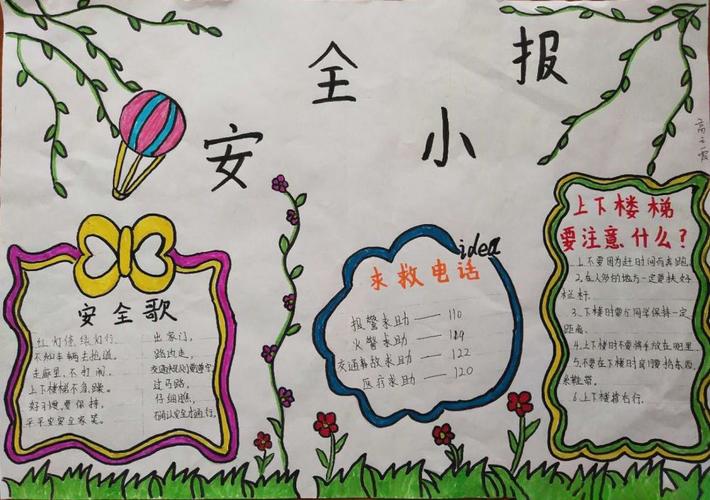 安全小报
安全歌
红灯停绿灯行,
不和车辆去抢道.
走廊里,不打闹,
上下楼梯不急躁.
好习惯,要保持,
平平安安全家笑.
出家门,
路边走,
交通规则要遵守.
过马路,
仔细瞧,
确认安全才通行.
idea
求救电话
报警求助 — 110
火警求助 — 119
交通事故求助 — 122
医疗求助 — 120
上下楼梯
要注意什么?
1.上不要因为赶时间而奔跑.
2.在人多的地方一定要扶好
栏杆.
3.下楼时要与同学保持一定
距离.
4.上下楼时不要将手放在兜里.
5.不要在下楼时 东西,
系鞋带.
6.上下楼靠右行.